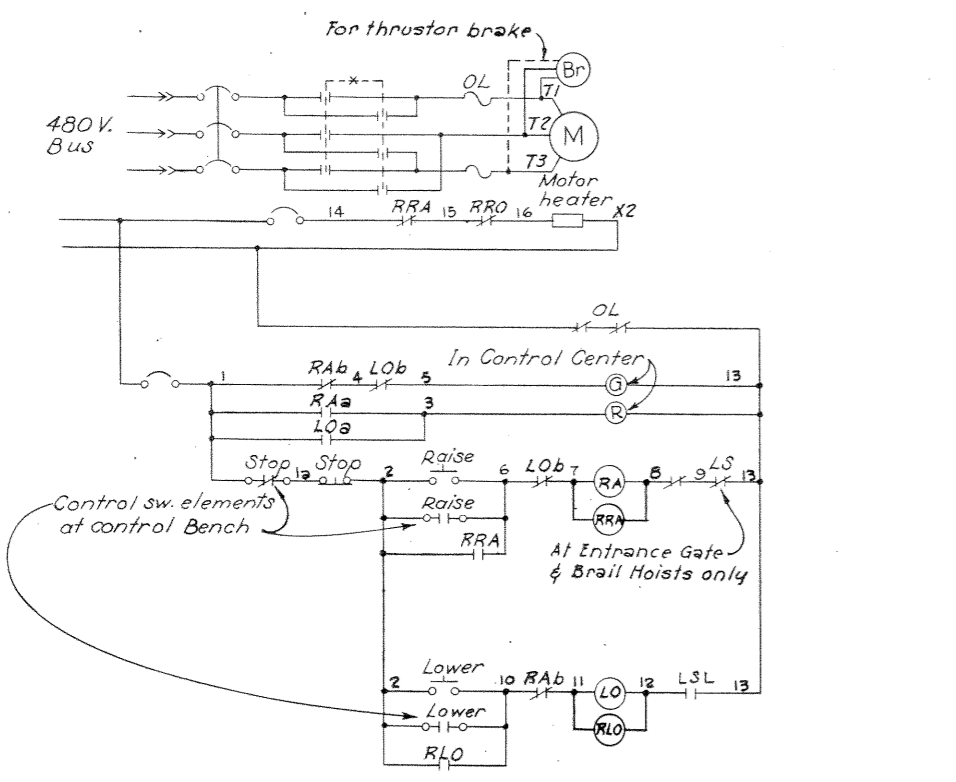 For thrustor brake
Br
OL
T1
480 V.
Bus
T2
M
T3
Motor
heater
14
RRA
15
RRO
16
X2
OL
In Control Center
1
RAb
4
LOb
5
G
13
RAa
3
R
LOa
Stop
1a
Stop
2
Raise
6
LOb
7
RA
8
9
LS
13
Control sw. elements
at control Bench
Raise
RRA
RRA
At Entrance Gate
& Brail Hoists only
2
Lower
10
RAb
11
LO
12
LSL
13
Lower
RLO
RLO